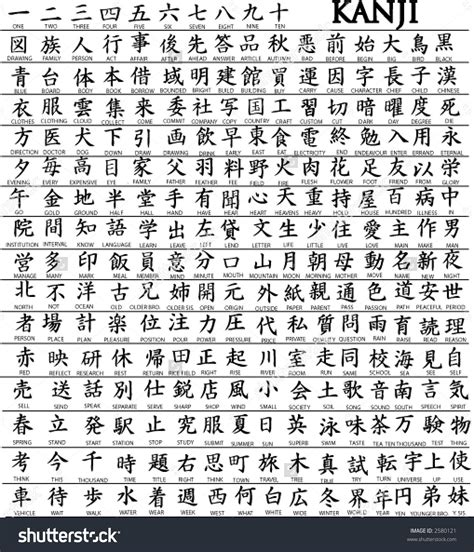 一二三四五六七八九十 KANJI
ONE TWO THREE FOUR FIVE SIX SEVEN EIGHT NINE TEN
図族人行事後先答品秋悪前始大鳥黒
DRAWING FAMILY PERSON ACT AFFAIR AFTER AHEAD ANSWER ARTICLE AUTUMN BAD BEFORE BEGIN BIG BIRD BLACK
青台体本借域明建館買運因字長子漢
BLUE BOARD BODY BOOK BORROW BOUNDED BRIGHT BUILD BUILDING BUY CARRY CAUSE CHARACTER CHIEF CHILD CHINESE
衣服雲集来委社写国工習切暗曜度死
CLOTHES CLOTHING CLOUD COLLECT COME COMMIT COMPANY COPY COUNTRY CRAFT CUSTOM CUT DARK DAY DEGREE DIE
方医犬下引画飲早東食電終勉入用永
DIRECTION DOCTOR DOG DOWN DRAW DRAWING DRINK EARLY EAST EAT ELECTRICITY END ENDEAVOUR ENTER ERRAND ETERNAL
夕毎高目家父羽料野火肉花足友以学
EVENING EVERY EXPENSIVE EYE FAMILY FATHER FEATHER FEE FIELD FIRE FLESH FLOWER FOOT FRIEND FROM
午金地半堂手有聞心天重屋百病中
GO GOLD GROUND HALF HALL HAND HAVE HEAR HEART HEAVEN HEAVY HOUSE HUNDRED ILLNESS IN
院間知語学出左貸文生少住愛主作男
INSTITUTION INTERVAL KNOW LANGUAGE LEARN LEAVE LEFT LEND LETTER LIFE LITTLE LIVE LOVE MAIN MAKE MAN
営多印飯員意分口山月朝母動名新夜
MANAGE MANY MARK MEAL MEMBER MIND MINUTE MOUTH MOUNTAIN MOON MORNING MOTHER MOVE NAME NEW NIGHT
北不洋古兄姉開元外紙親通色道安世
NORTH NOT OCEAN OLD OLDER BRO. OLDER SIS. OPEN ORIGIN OUTSIDE PAPER PARENT PASS PASSION PATH PEACE PERIOD
者場計楽位注力代私質問雨育読理
PERSON PLACE PLAN PLEASURE POSITION POUR POWER PRESSURE PRIVATE QUALITY QUESTION RAIN RAISE READ REASON
赤映研休帰田正起川室走同校海見自
RED REFLECT RESEARCH REST RETURN RICE FIELD RIGHT RISE RIVER ROOM RUN SAME SCHOOL SEA SEE SELF
売送話別仕鋭店風小会土歌音思言気
SELL SEND SPEAK SEPARATE SERVE SHARP SHOP WIND SMALL SOCIETY SOIL SONG SOUND SOUTH SPEECH SPIRIT
春立発駅止勉服夏日英泳味茶万験物
SPRING STAND START STATION STOP STUDY SUMMER SUN SWIM TASTE TEA TEN THOUSAND TEST THING
考今千時題右思町旅木真試転宇上使
THINK THIS THOUSAND TIME TITLE TOWN TRAVEL TREE TRUE TRY TURN UNIVERSE UP USE
車待歩水着週西何白広冬世界年円弟妹
VEHICLE WAIT WALK WATER WEAR WEEK WEST WHAT WHITE WIDE WINTER WORLD YEAR YEN
shutterstock
IMAGE ID: 2580121
www.shutterstock.com